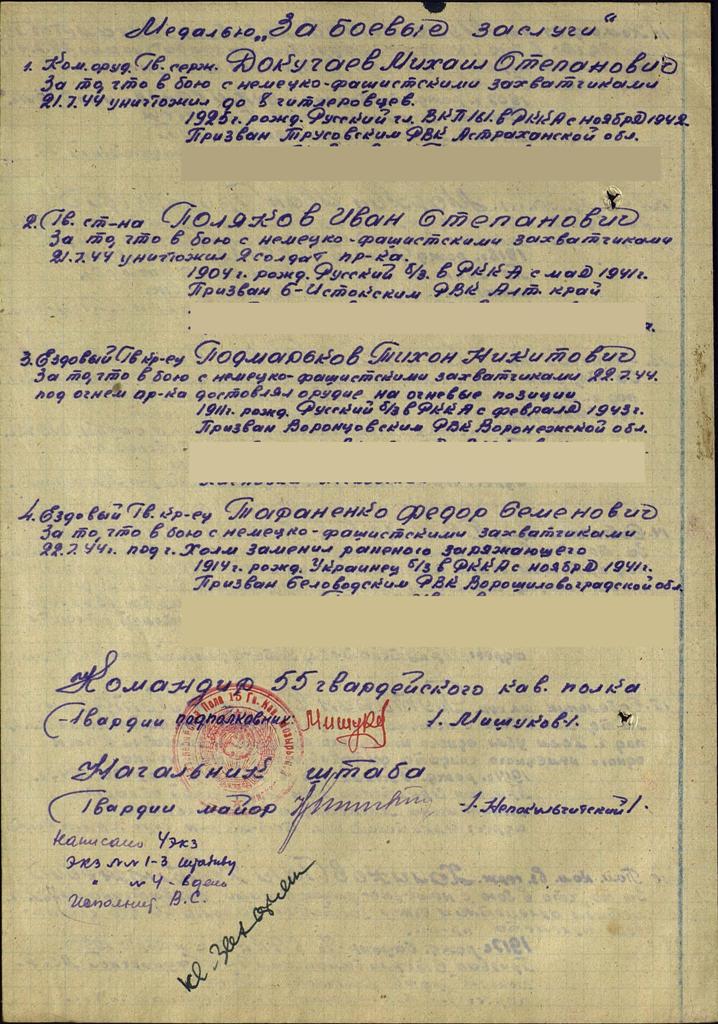 Медалью „За боевые заслуги"
1. Ком. оруд. Гв. серж. Докучаев Михаил Степанович
За то, что в бою с немецко-фашистскими захватчиками
21.7.44 уничтожил до 8 гитлеровцев.
1925 г. рожд. Русский чл. ВКП/б/. в РККА с ноября 1942
Призван Трусовским РВК Астраханской обл.
2. Гв. ст-на Поляков Иван Степанович
За то, что в бою с немецко-фашистскими захватчиками
21.7.44 уничтожил 2 солдат пр-ка.
1904 г. рожд. Русский б/з. в РККА с мая 1941 г.
Призван б-Истокским РВК Алт. край
3. Ездовый Гв кр-ец Подмарьков Тихон Никитович
За то, что в бою с немецко-фашистскими захватчиками 22.7.44.
под огнем пр-ка доставлял орудие на огневые позиции
1911 г. рожд. Русский б/з в РККА с февраля 1943 г.
Призван Воронцовским РВК Воронежской обл.
4. Ездовый Гв. кр-ец Тафаненко Федор Семенович
За то, что в бою с немецко-фашистскими захватчиками
22.7.44 г. под г. Холм заменил раненого заряжающего
1914 г. рожд. Украинец б/з в РККА с ноября 1941 г.
Призван Беловодским РВК Ворошиловградской обл.
Командир 55 гвардейского кав. полка
Гвардии подполковник: /. Мишуков/.
Начальник штаба
Гвардии майор /. Непокульчитский/.
Написано 4 экз
экз №№ 1-3 штадиву
" № 4 - в дело
Исполнит В.С.